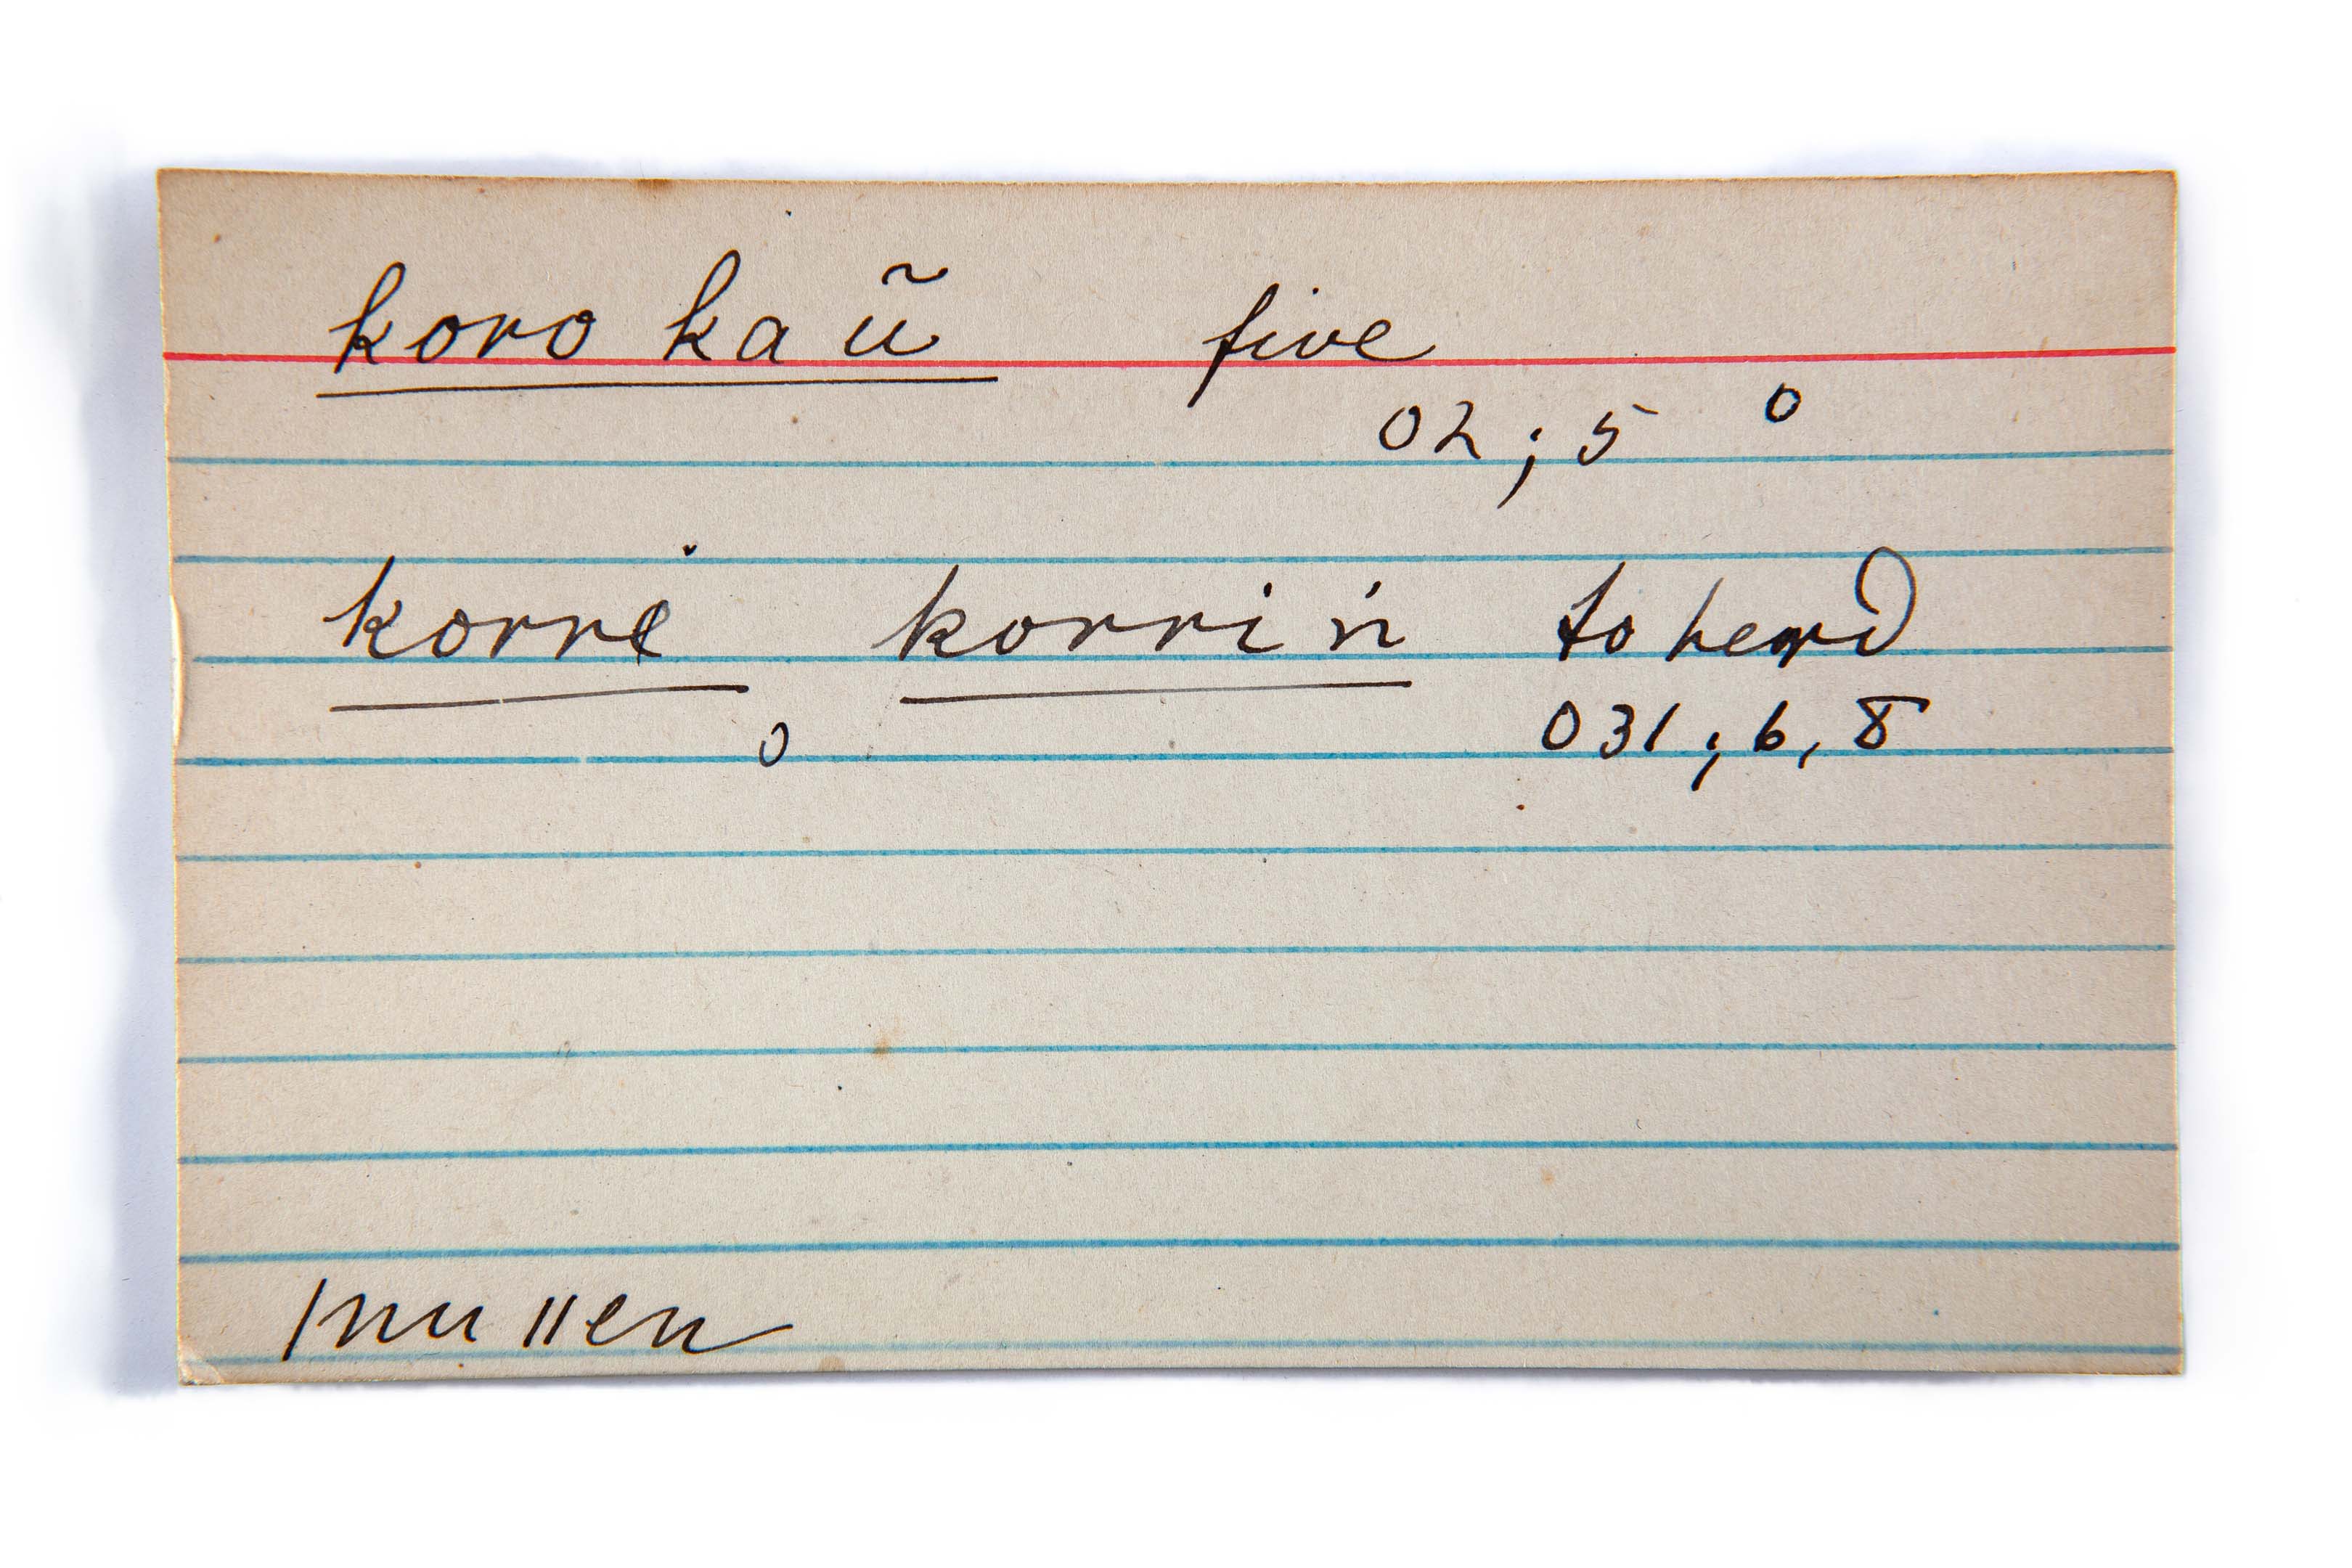 koro ka ũ five
02 ; 5 o
korre korri ń to herd
o 031 ; 6, 8